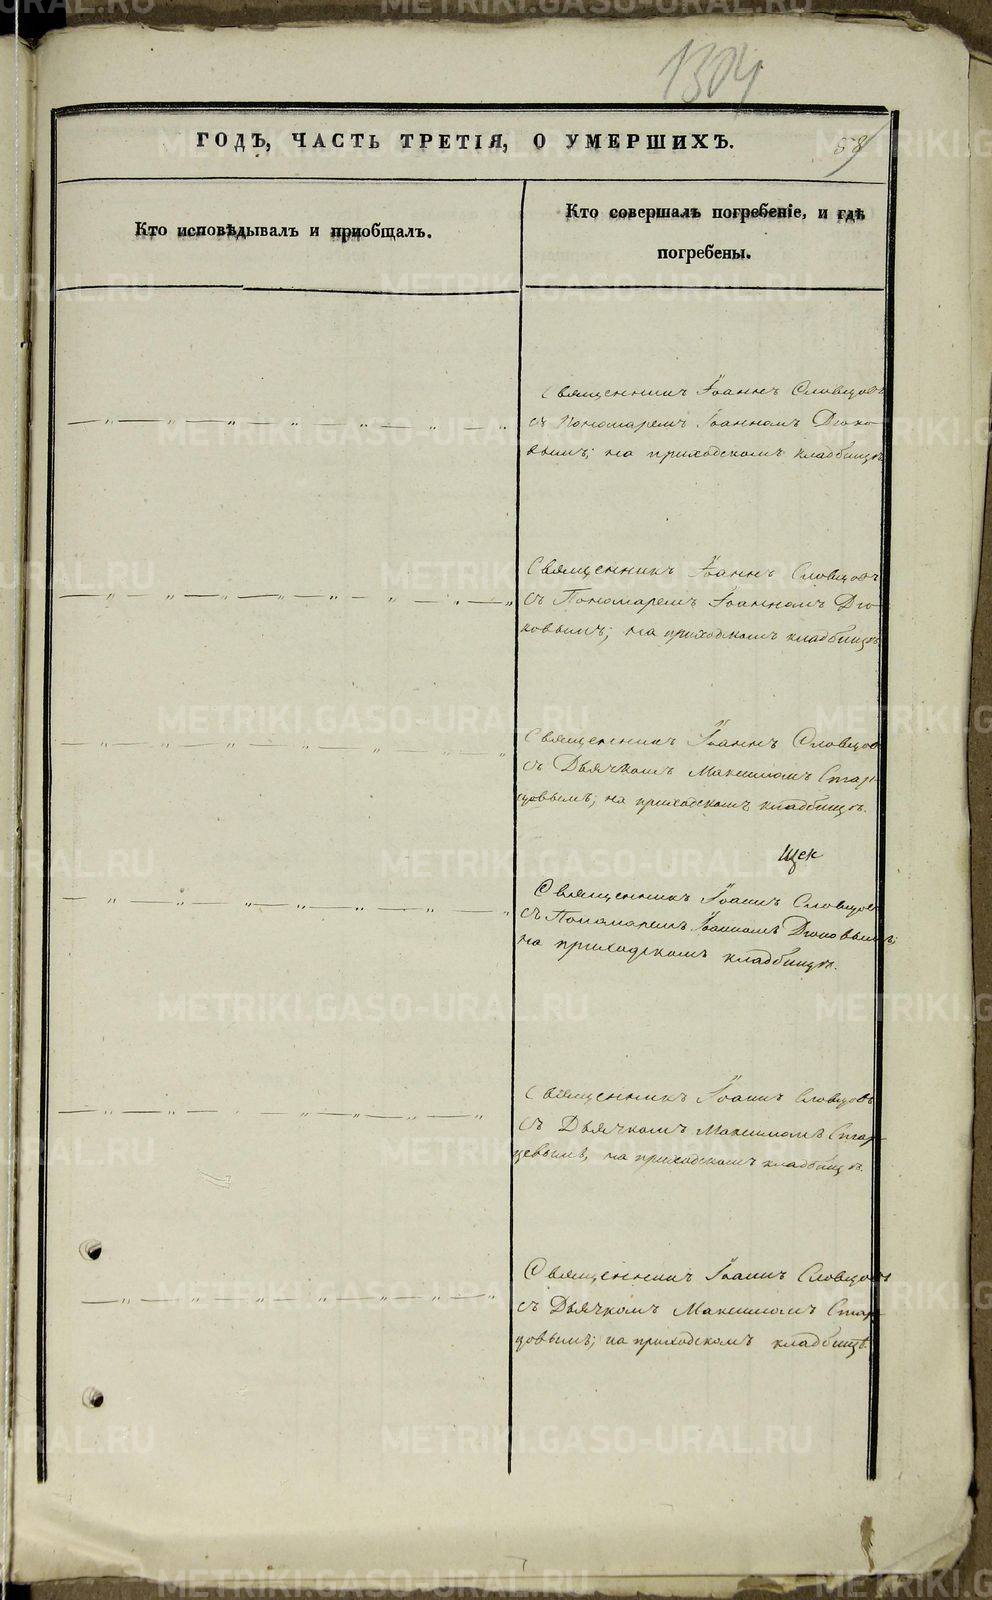 1304
ГОДЪ, ЧАСТЬ ТРЕТІЯ, О УМЕРШИХЪ.
Кто исповѣдывалъ и приобщалъ.
Кто совершалъ погребеніе, и гдѣ
погребены.
Священникъ Іоаннъ Словцовъ
съ Пономаремъ Іоанномъ Дьяко-
вымъ; на приходскомъ кладбищѣ
Священникъ Іоаннъ Словцовъ
съ Пономаремъ Іоанномъ Дья-
ковымъ; на приходскомъ кладбищѣ
Священникъ Іоаннъ Словцов
съ Дьячкомъ Максимомъ Стар-
цовымъ; на приходскомъ кладбищѣ.
Священникъ Іоаннъ Словцов
съ Пономаремъ Іоанномъ Дьяковымъ;
на приходскомъ кладбищѣ.
Священникъ Іоаннъ Словцовъ
съ Дьячкомъ Максимомъ Стар-
цевымъ, на приходскомъ кладбищѣ.
Священникъ Іоаннъ Словцовъ
съ Дьячкомъ Максимомъ Стар-
цовымъ; на приходскомъ кладбищѣ.
METRIKI.GASO-URAL.RU